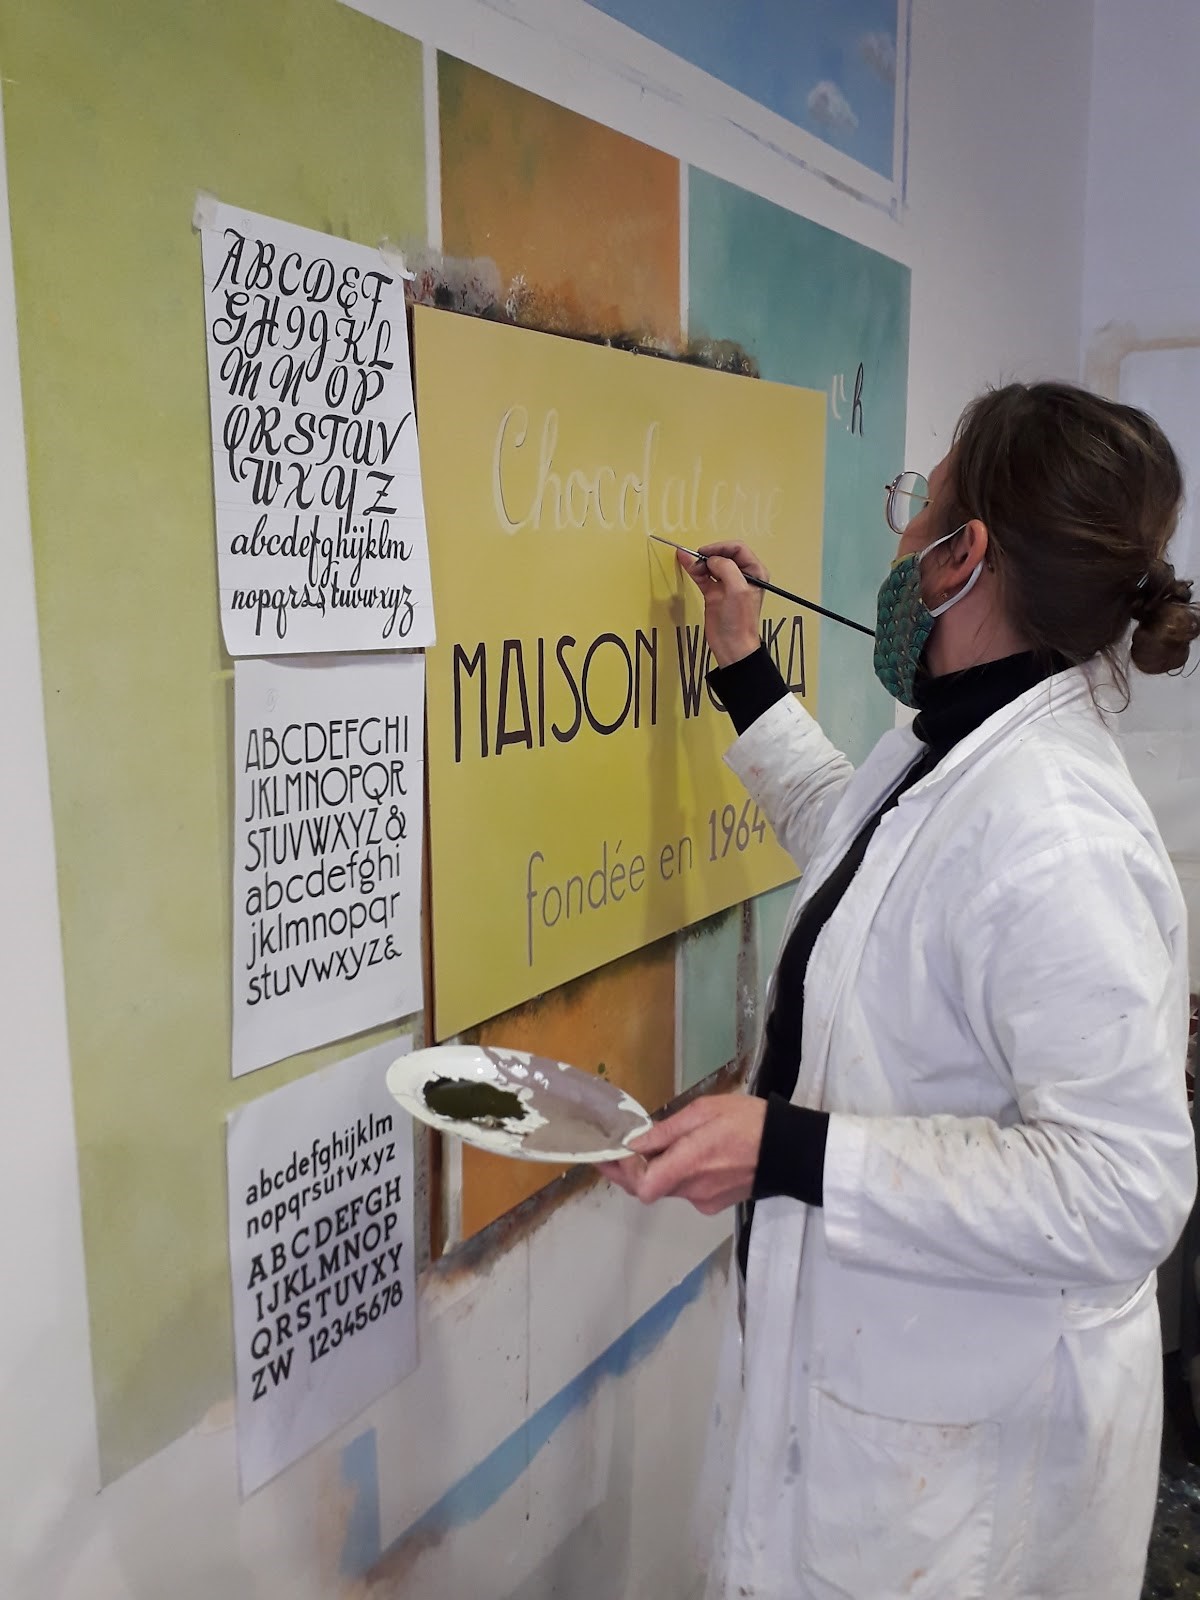 ABCDEF
GHIJKL
MNOP
QRSTUV
WXYZ
abcdefghijklm
nopqrsstuvwxyz
ABCDEFGHI
JKLMNOPQR
STUVWXYZ&
abcdefghi
jklmnopqr
stuvwxyz&
abcdefghijklm
nopqrsutvxyz
ABCDEFGH
IJKLMNOP
QRSTUVXY
ZW 12345678
Chocolaterie
MAISON WONKA
fondée en 1964
h